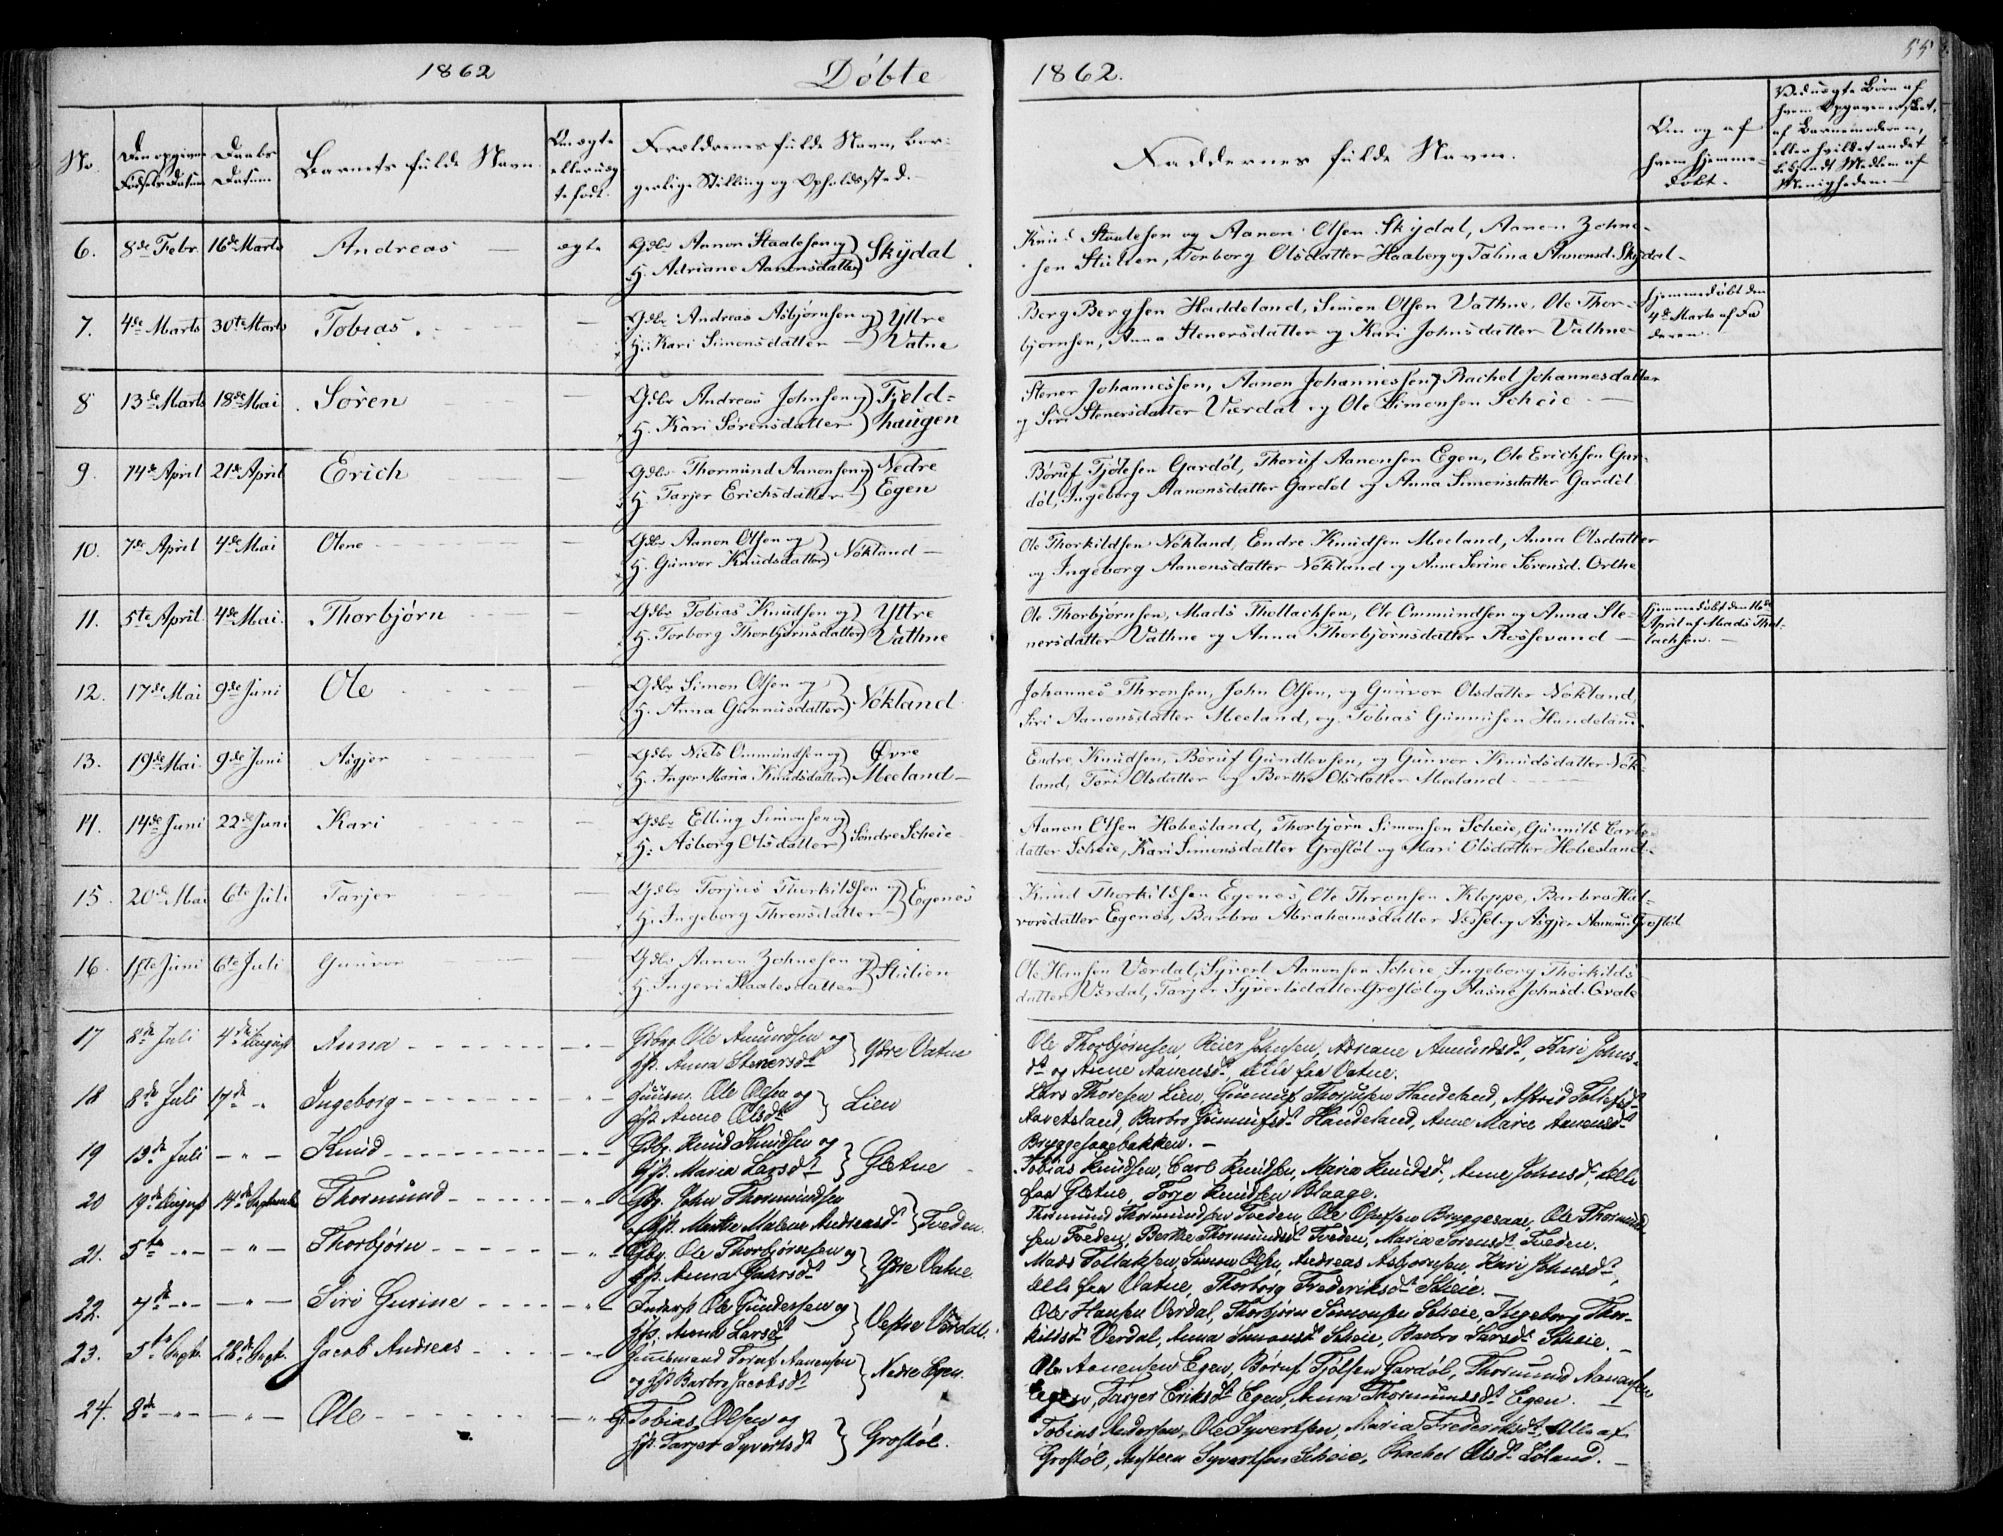 1862 Døbte 1862. 55
No. Den opgivne Fødsels Datum Daabs Datum Barnets fulde Navn Om ægte eller uægte født. Forældrenes fulde Navn, borgerlige Stilling og Opholdssted. Faddernes fulde Navn. Om og af hvem hjemmedøbt.
6. 8de Febr. 16de Marts Andreas ægte Gdbr Aanon Staalesen og Skydal
H. Adriane Aanonsdatter
Knud Staalesen og Aanon Olsen Skydal, Aanon Zohne-
sen Stulien, Torborg Olsdatter Haaberg og Talina Aanonsd. Skydal
7. 4de Marts 30te Marts Tobias. Gdbr Andreas Asbjørnsen og Yttre
H. Kari Simonsdatter Vatne
Berg Bergsen Haddeland, Simon Olsen Vathne, Ole Thor-
bjørnsen, Anna Stenersdatter og Kari Johnsdatter Vathne
hjemmedøbt den
4de Marts af Fa
deren.
8 13de Marts 18de Mai Søren Gdbr Andreas Johnsen og Fjeld-
H. Kari Sørensdatter haugen
Stener Johannessen, Aanon Johannessen, Rachel Johannesdatter
og Siri Stenersdatter Værdal og Ole Simonsen Scheie
9. 14de April 21de April Erich Gdbr Thormund Aanonsen og Nedre
H. Tarjer Erichsdatter Egen
Børuf Tjølsen Gardøl, Thoruf Aanonsen Egen, Ole Erichsen Gar-
døl, Ingeborg Aanonsdatter Gardøl og Anna Simonsdatter Gardøl
10. 7de April 4de Mai Olene Gdbr Aanon Olsen og Nøkland
H. Gunvor Knudsdatter
Ole Thorkildsen Nøkland, Endre Knudsen Meeland, Anna Olsdatter
og Ingeborg Aanonsdatter Nøkland og Anne Serine Sørensd. Orthe
11. 5te April 4de Mai. Thorbjørn Gdbr Tobias Knudsen og Yttre
H. Torborg Thorbjørnsdatter Vathne
Ole Thorbjørnsen, Mads Thollachsen, Ole Ommundsen og Anna Ste-
nersdatter Vathne og Anna Thorbjørnsdatter Rossevand
hjemmedøbt den 16de
April af Mads Thol-
lachsen.
12. 17de Mai 9de Juni Ole Gdbr Simon Olsen og Nøkland
H. Anna Gunnusdatter
Johannes Thronsen, John Olsen, og Gunvor Olsdatter Nøkland,
Siri Aanonsdatter Meeland, og Tobias Gunnusen Handeland
13. 19de Mai 9de Juni Asgjer Gdbr Niels Ommundsen og Øvre
H. Inger Maria Knudsdatter Meeland
Endre Knudsen, Børuf Gundlevsen, og Gunvor Knudsdatter Nøk-
land, Tøri Olsdatter og Berthe Olsdatter Meeland
14. 14de Juni 22de Juni Kari Gdbr Elling Simonsen og Søndre Scheie
H. Asborg Olsdatter
Aanon Olsen Hobesland, Thorbjørn Simonsen Scheie, Gunnild Carls-
datter Scheie, Kari Simonsdatter Grostøl og Mari Olsdatter Hobesland
15. 20de Mai 6te Juli Tarjer Gdbr Torjus Thorkildsen og Egenes
H. Ingeborg Thronsdatter
Knud Thorkildsen Egenes, Ole Thronsen Kleppe, Barbro Hal-
vorsdatter Egenes, Barbro Abrahamsdatter Vessel og Asgjer Aanons. Grostøl
16. 6te Juli Gunvor Gdbr Aanon Zohnesen og Stulien
H. Ingeri Staalesdatter
Ole Hansen Værdal, Syvert Aanonsen Scheie, Ingeborg Thorkilds
datter Værdal, Tarjer Syvertsdatter Grostøl og Aasne Johnsd. Qvale
17 8de Juli 4de August Anna Gdbrg. Ole Amundsen og Ydre Vatne
Hst. Anna Stenersdt
Ole Thorbjørnsen, Reier Johnsen, Adriane Amundsdt, Kari Johns-
dt og Anne Aanensdt, alle fra Vatne.
18 8de Juli 17de " Ingeborg Ole Olsen og Lien
Hst. Anne Olsdt
Lars Thoresen Lien, Gunnuf Handeland, Astrid Tellefsdt
Aavetsland, Barbro Gunnufsdt Handeland, Anne Marie Aanensdt
Bryggesaagbakken.
19 13de Juli - " - Knud Gdbg. Knud Knudsen og Gletne
Hst. Maria Larsdt
Tobias Knudsen, Carl Knudsen, Maria Knudsdt, Anne Johnsdt, Alle
fra Gletne, Torje Knudsen Blaage.
20 19de August 14de Septembr Thormund Gbg. John Thormundsen
Hst. Marthe Malene Andreasdt Tveden.
Thormund Thormundsen Tveden, Ole Olsen Bryggesaae, Ole Thormund
sen Tveden, Berthe Thormundsdt Tveden, Maria Sørensdt Tveden.
21. 5te - " - - " - Thorbjørn Gbg. Ole Thorbjørnsen og Ydre Vatne.
Hst. Anna
Mads Tollaksen, Simon Olsen, Andreas Asbjørnsen, Kari Johnsdt,
Alle fra Vatne, Thorborg Frederiksdt Scheie.
22. 7de - " - - " - Siri Gurine Inderst Ole Gundersen og Vestre Værdal.
Hst. Anna Larsdt
Ole Hansen Verdal, Thorbjørn Simonsen Scheie, Ingeborg Thor-
kildsdt Verdal, Anna Simonsdt Scheie, Barbro Larsdt Scheie.
23. 5te Septb. 28de Septb. Jacob Andreas Huusmand Toruf Aanensen Nedre Egen.
og Hst Barbro Jacobsdt
Ole Aanensen Egen, Børuf Tjølsen Gardøl, Thormund Aanensen
Egen, Tarjer Eriksdt Egen, Anna Thormundsdt Egen.
24. 8de - " - - " - Ole G. Tobias Olsen og Grostøl.
Hst. Tarjer Syvertsdt
Tobias Andersen, Ole Syvertsen, Maria Frederiksdt, Alle af
Grostøl, Anstein Syvertsen Scheie, Rachel Olsdt Løland.